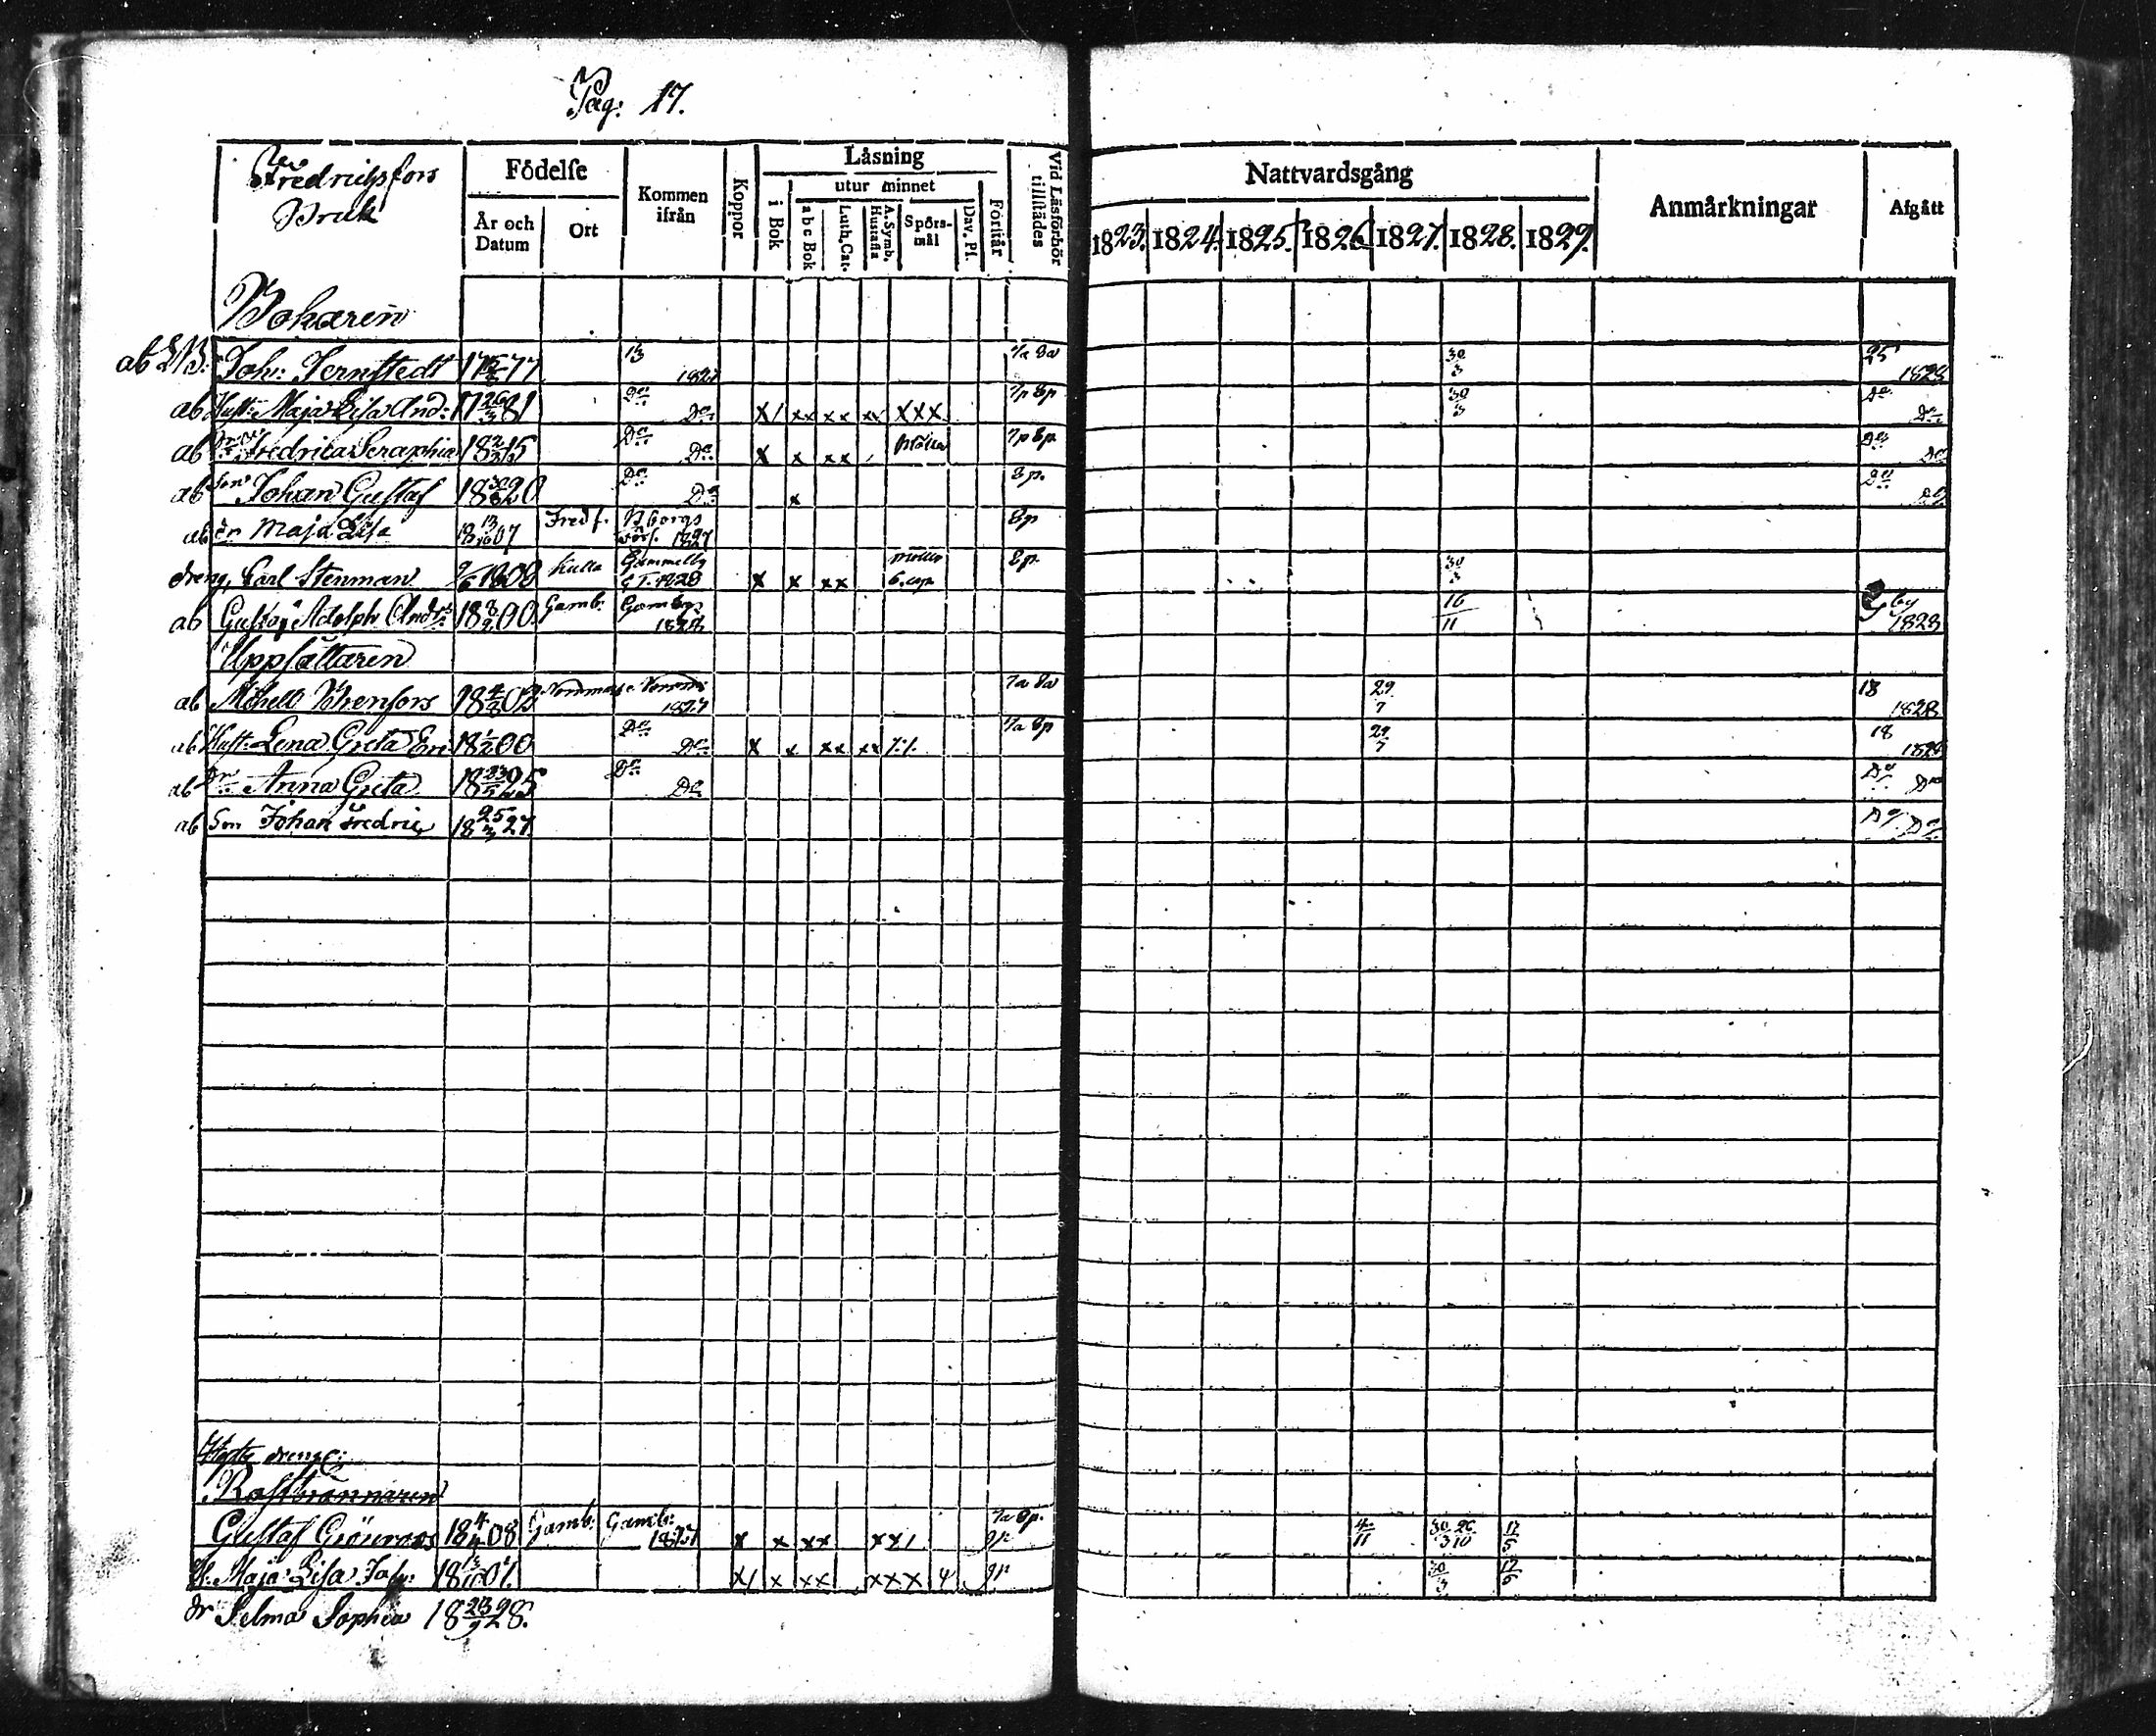 Pag: 17.
Fredricsfors
Bruk
Födelse
År och Datum
Ort
Kommen ifrån
Koppor
Läsning
i Bok
utur minnet
a b c Bok
Luth. Cat.
A. Symb. Hustafla
Spörsmål
Dav. Ps.
Förstår
Vid Läsförhör tillstädes
Nattvardsgång
1823. 1824. 1825. 1826 1827. 1828. 1829.
Anmärkningar
Afgått
Bokaren
ab Joh: Jernstedt 17 77 13 1827 7a 8a 30/3 25 1828
ab Hust: Maja Lisa And: 17 26/3 81 Do Do x/ xx xx xx xxx 7p 8p 30/3 Do Do
ab Fredrica Seraphia 18 15 Do Do x x xx 7p 8p Do Do
ab son Johan Gustaf 18 20 Do Do x 8p. Do Do
ab dr Maja Lisa 18 13/10 07 Fredf. 1827 8p
dreng, Carl Stenman 9/6 1808 Kulla Gammelby 1828 x x xx 8p. 30/3
ab Gustaf Adolph Andrs 18 8/2 00. Gamb. Gamby 1828 16/11 by 1828
Uppsättaren
ab Mihell Brenfors 18 4/8 02 1827 7a 8a 29/7 18 1828
ab Hust: Lena Greta Eri 18 1/2 00 Do Do x x xx xx 7a 8p 29/7 18 1828
ab dr Anna Greta 18 25 Do Do Do Do
ab Son Johan Fredric 18 25/3 27. Do Do
drenge:
Rostbrännaren
Gustaf Grönroos 18 4/4 08 Gamb: Gamb: 1827 x x xx xx/ 7a 8p. 9p 4/11 30/3 26/10 17/5
H: Maja Lisa Joh: 18 07. x/ x xx xxx 4 9p 30/3 17/5
dr Selma Sophia 18 28.